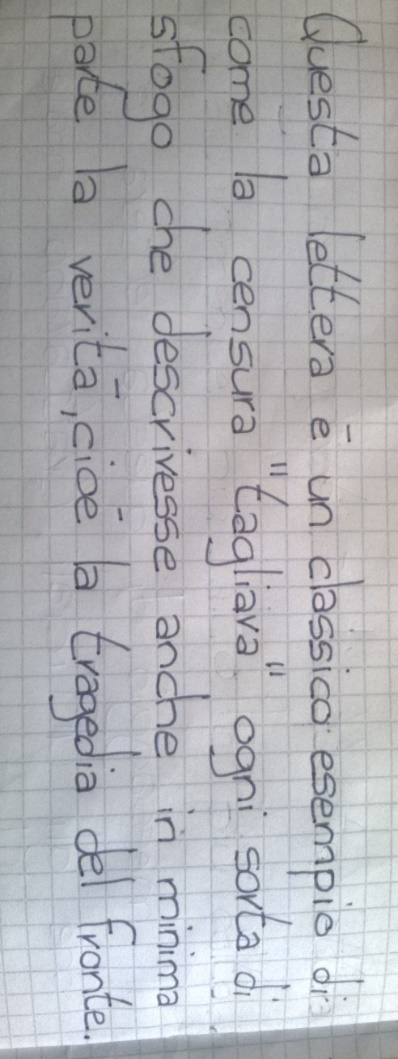 Questa lettera è un classico esempio di
come la censura "tagliava" ogni sorta di
sfogo che descrivesse anche in minima
parte la verità, cioè la tragedia del fronte.